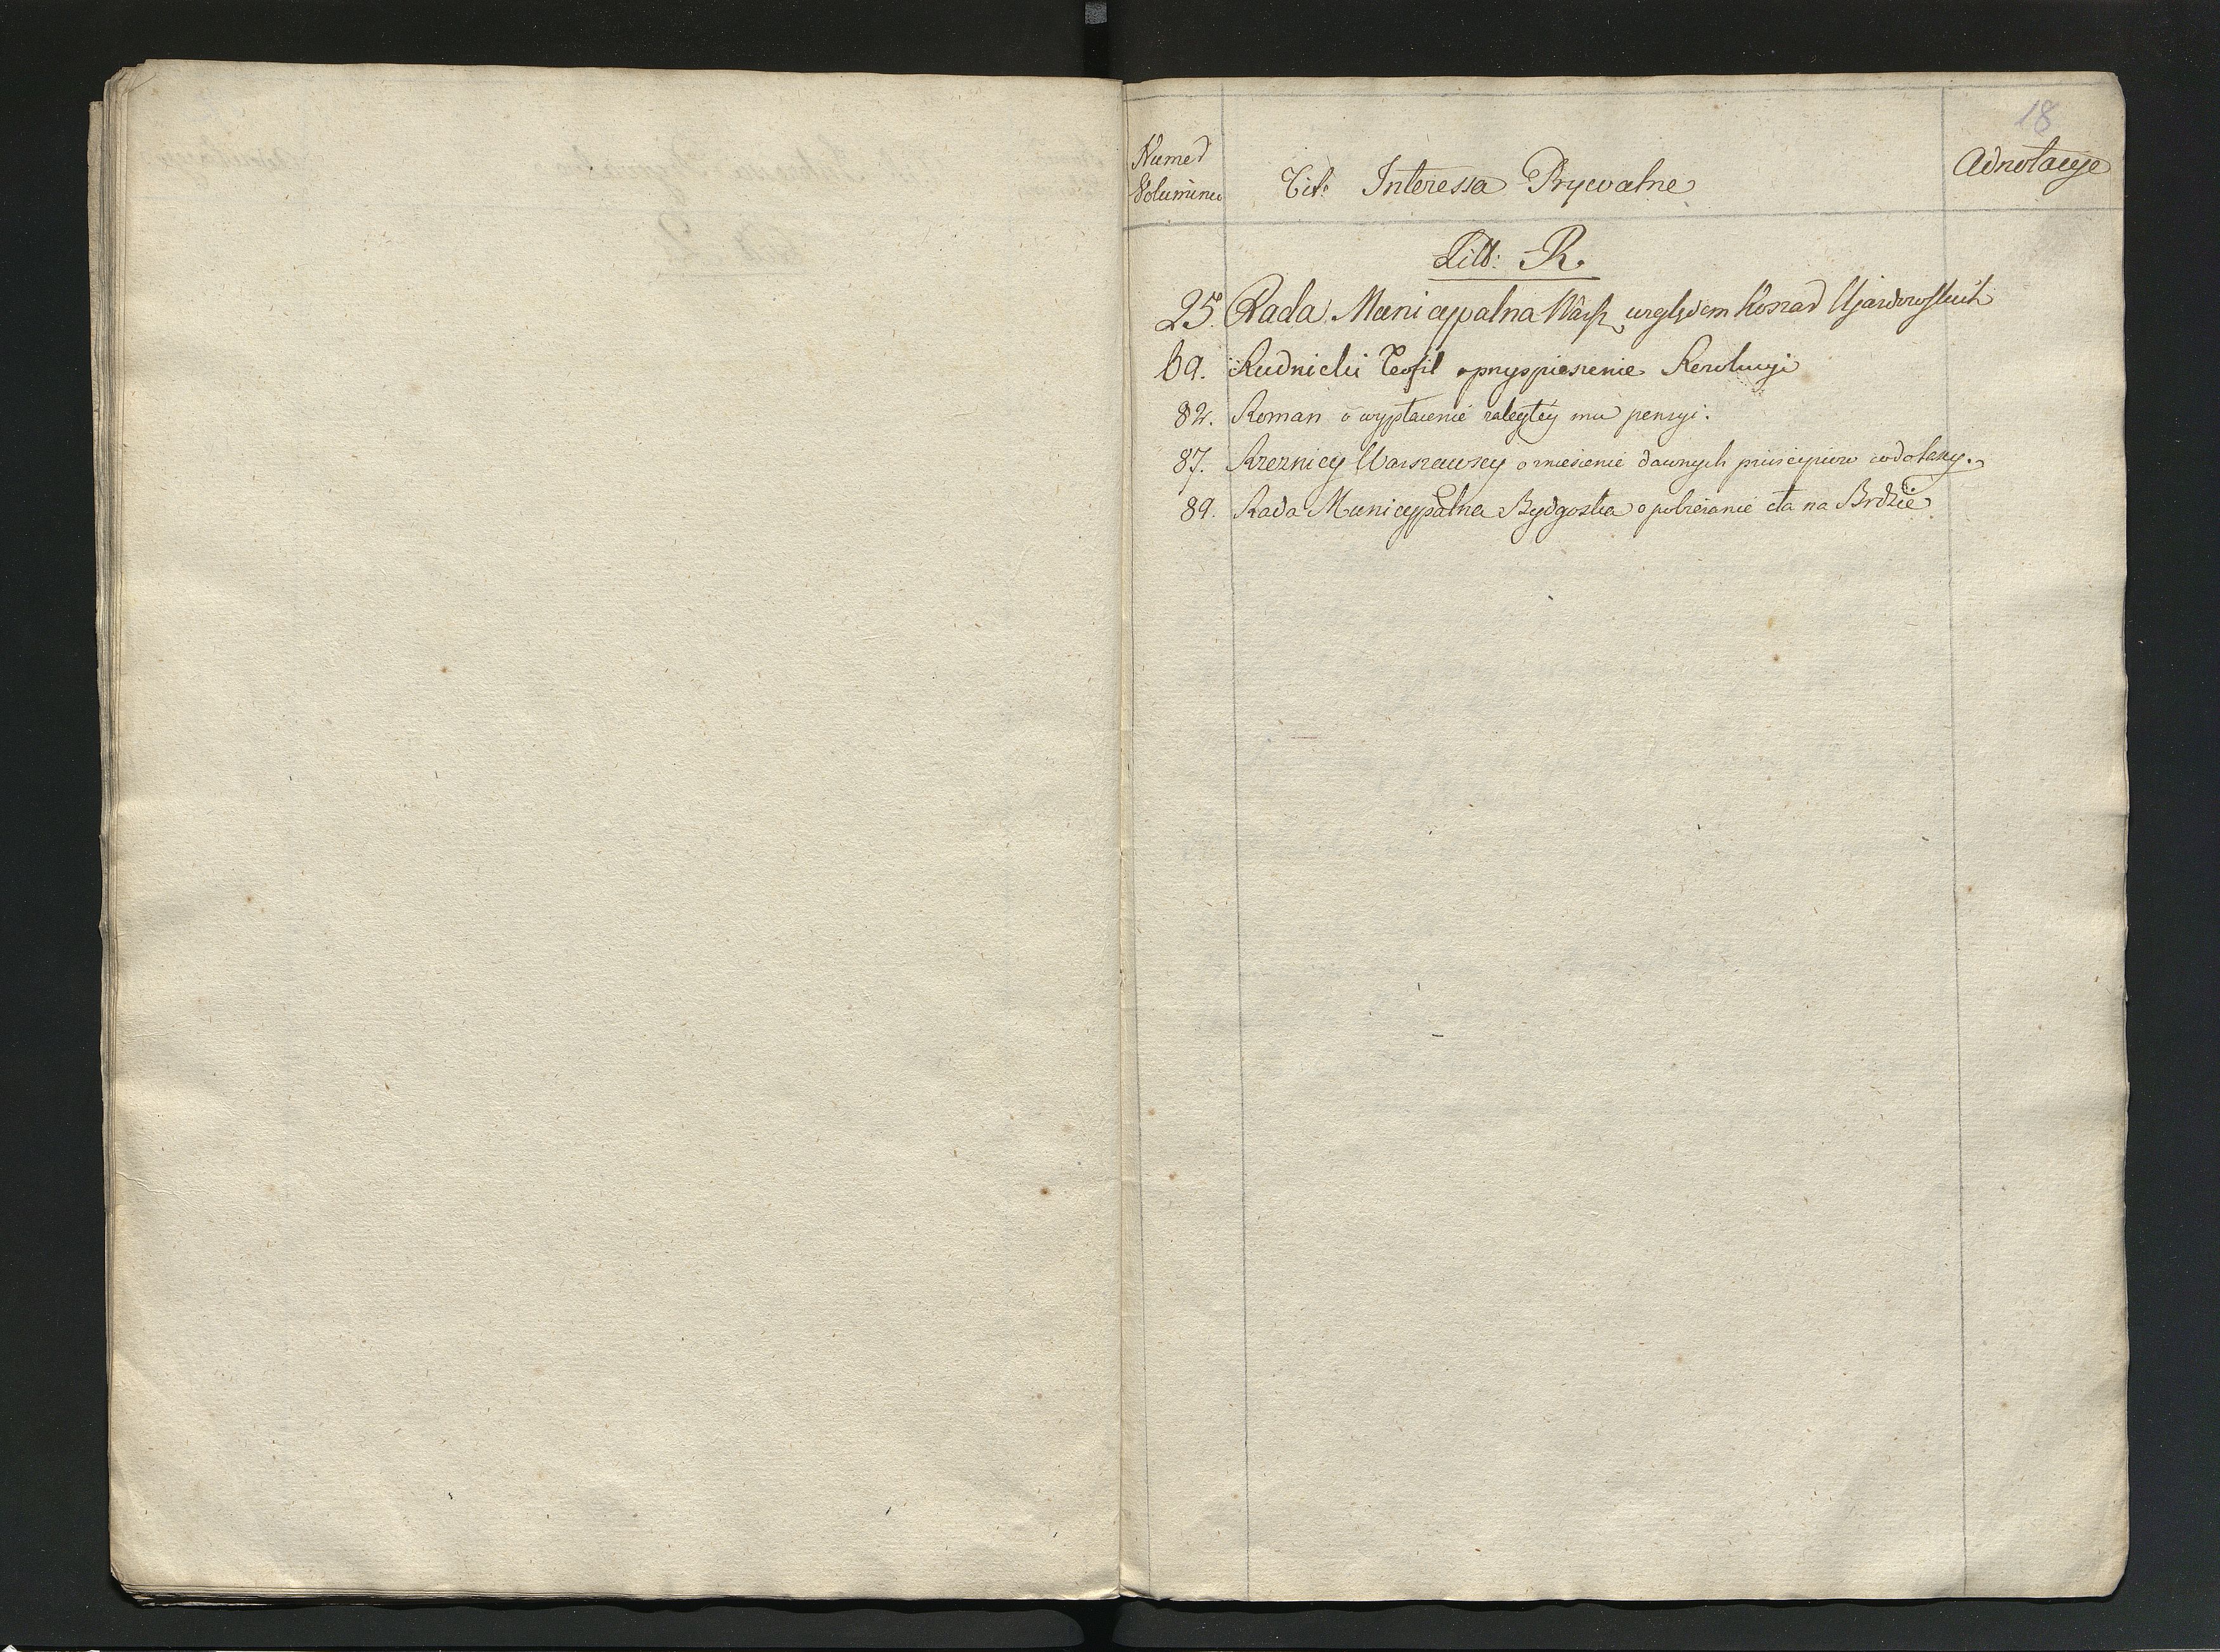 18
Numer
Volumina
Tit: Interessa Prywatne
Adnotacye
Litt: R.
25. Rada Municypalna Warsz względem Koszar Ujazdowskich
69. Rudnicki Teofil o przyspieszenie Rezolucyi
82. Roman o wypłacenie zaległéy mu pensyi.
87. Rzeznicy Warszawscy o zniesienie dawnych principiów co do taxy.
89. Rada Municypalna Bydgoska o pobieranie cła na Brdzie